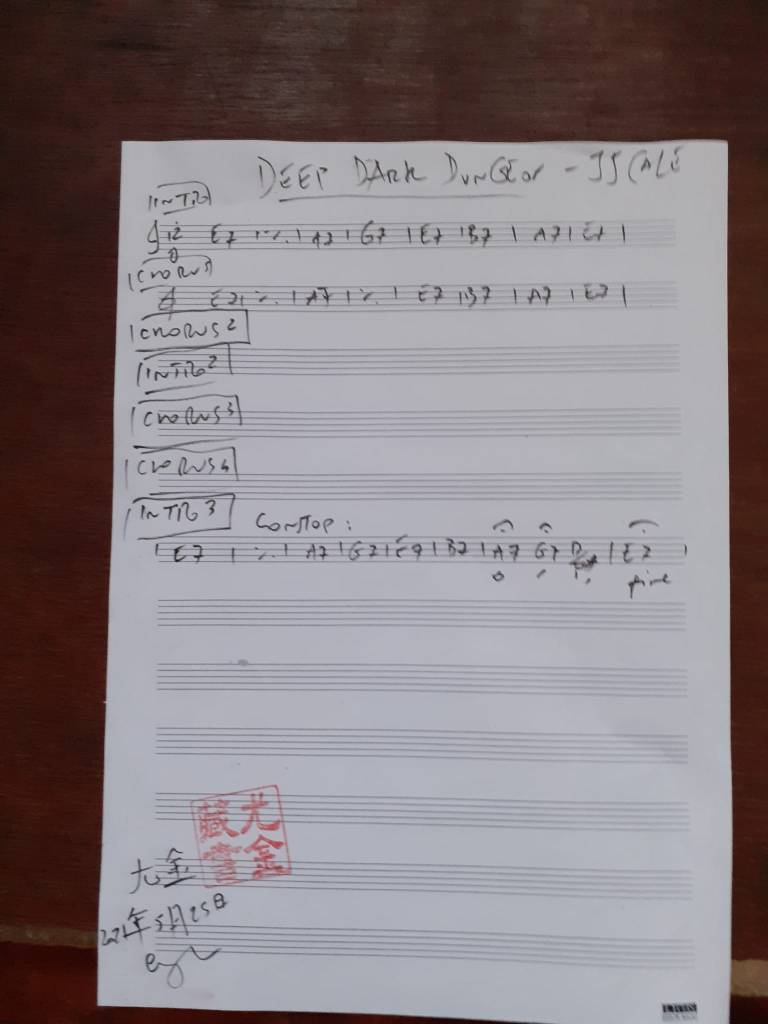 DEEP DARK DUNGEON - JJ CALE
INTRO
12 E7 | ٪ | A7 | G7 | E7 | B7 | A7 | E7 |
CHORUS
E7 | ٪ | A7 | ٪ | E7 | B7 | A7 | E7 |
CHORUS 2
INTRO 2
CHORUS 3
CHORUS 4
INTRO 3
| E7 | ٪ | A7 | G7 | E7 | B7 | A7 G7 | E7 |
fine
尤金
藏書
尤金
年5月25日